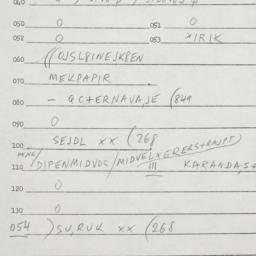 050 O 051 O
052 O 053 XIRIK
060 ((OJSL8INEJK8EN
070 MEKPAPIR
080 – QC+ERNAVAJE (849
090 O
100 SEJDL XX (268
110 DIPENMIDVOS/MIDVELXERERS+RAJPT) KARANDAS+
120 O
130 O
054 )SU,RUK XX (268